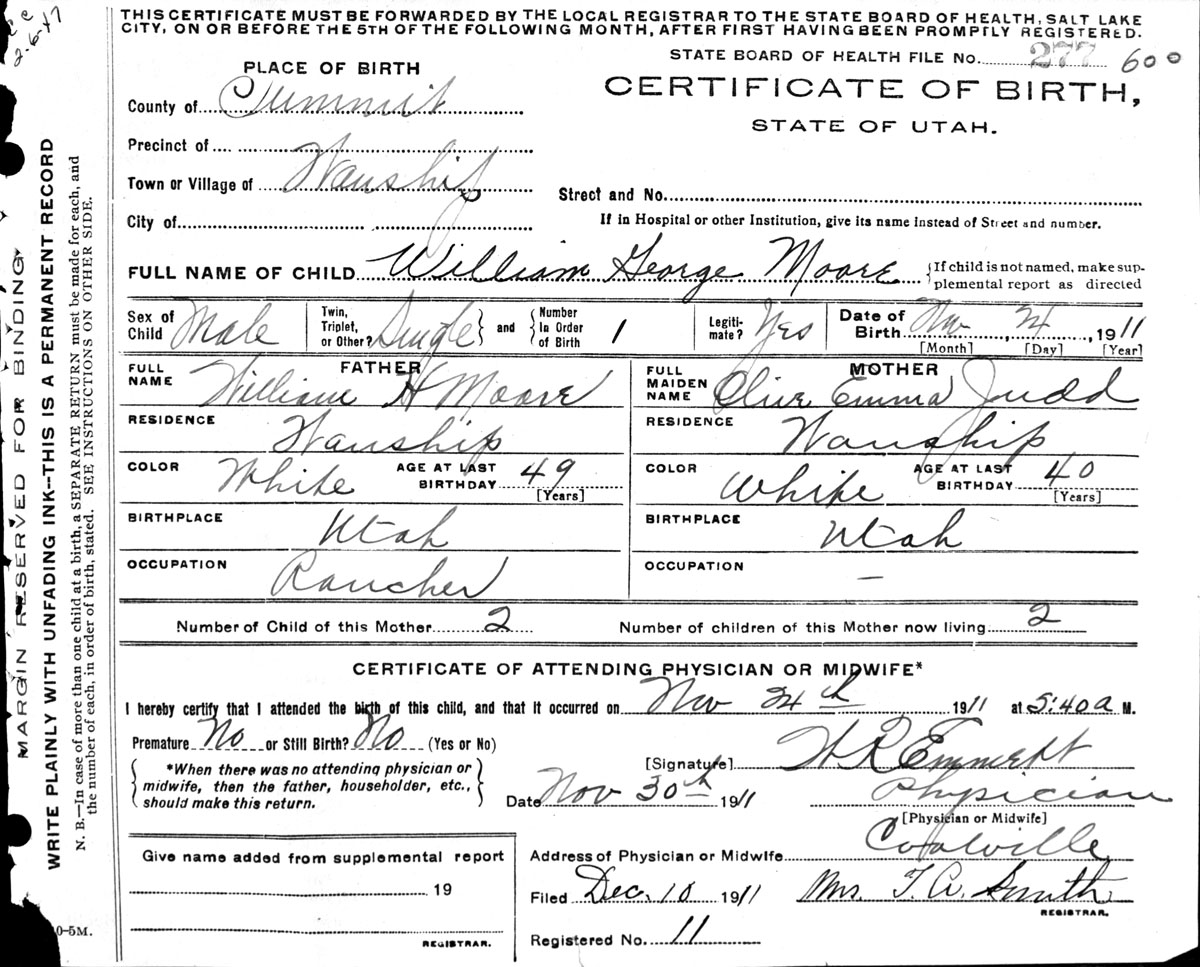 THIS CERTIFICATE MUST BE FORWARDED BY THE LOCAL REGISTRAR TO THE STATE BOARD OF HEALTH, SALT LAKE
CITY, ON OR BEFORE THE 5TH OF THE FOLLOWING MONTH, AFTER FIRST HAVING BEEN PROMPTLY REGISTERED.
STATE BOARD OF HEALTH FILE No. 277 600
PLACE OF BIRTH
CERTIFICATE OF BIRTH,
STATE OF UTAH.
County of Summit
Precinct of
Town or Village of Wanship
Street and No.
City of
If in Hospital or other Institution, give its name Instead of Street and number.
FULL NAME OF CHILD William George Moore {If child is not named, make sup-
plemental report as directed
Sex of Child Male Twin, Triplet, or Other? Single and Number In Order of Birth 1 Legiti-mate? Yes Date of Birth Nov 24, 1911
[Month] [Day] [Year]
FATHER MOTHER
FULL NAME William H Moore FULL MAIDEN NAME Olive Emma Judd
RESIDENCE Wanship RESIDENCE Wanship
COLOR White AGE AT LAST BIRTHDAY 49 [Years] COLOR White AGE AT LAST BIRTHDAY 40 [Years]
BIRTHPLACE Utah BIRTHPLACE Utah
OCCUPATION Rancher OCCUPATION —
Number of Child of this Mother 2 Number of children of this Mother now living 2
CERTIFICATE OF ATTENDING PHYSICIAN OR MIDWIFE*
I hereby certify that I attended the birth of this child, and that it occurred on Nov 24th 1911 at 5:40 a M.
Premature No or Still Birth? No (Yes or No)
[Signature] H R Emmett
*When there was no attending physician or
midwife, then the father, householder, etc.,
should make this return.
Date Nov 30th 1911 Physician
[Physician or Midwife]
Give name added from supplemental report
19
REGISTRAR.
Address of Physician or Midwife Coalville
Filed Dec. 10 1911 Mrs. T. A. Smith
REGISTRAR.
Registered No. 11
MARGIN RESERVED FOR BINDING
WRITE PLAINLY WITH UNFADING INK--THIS IS A PERMANENT RECORD
N. B.—In case of more than one child at a birth, a SEPARATE RETURN must be made for each, and
the number of each, in order of birth, stated. SEE INSTRUCTIONS ON OTHER SIDE.
0-5M.